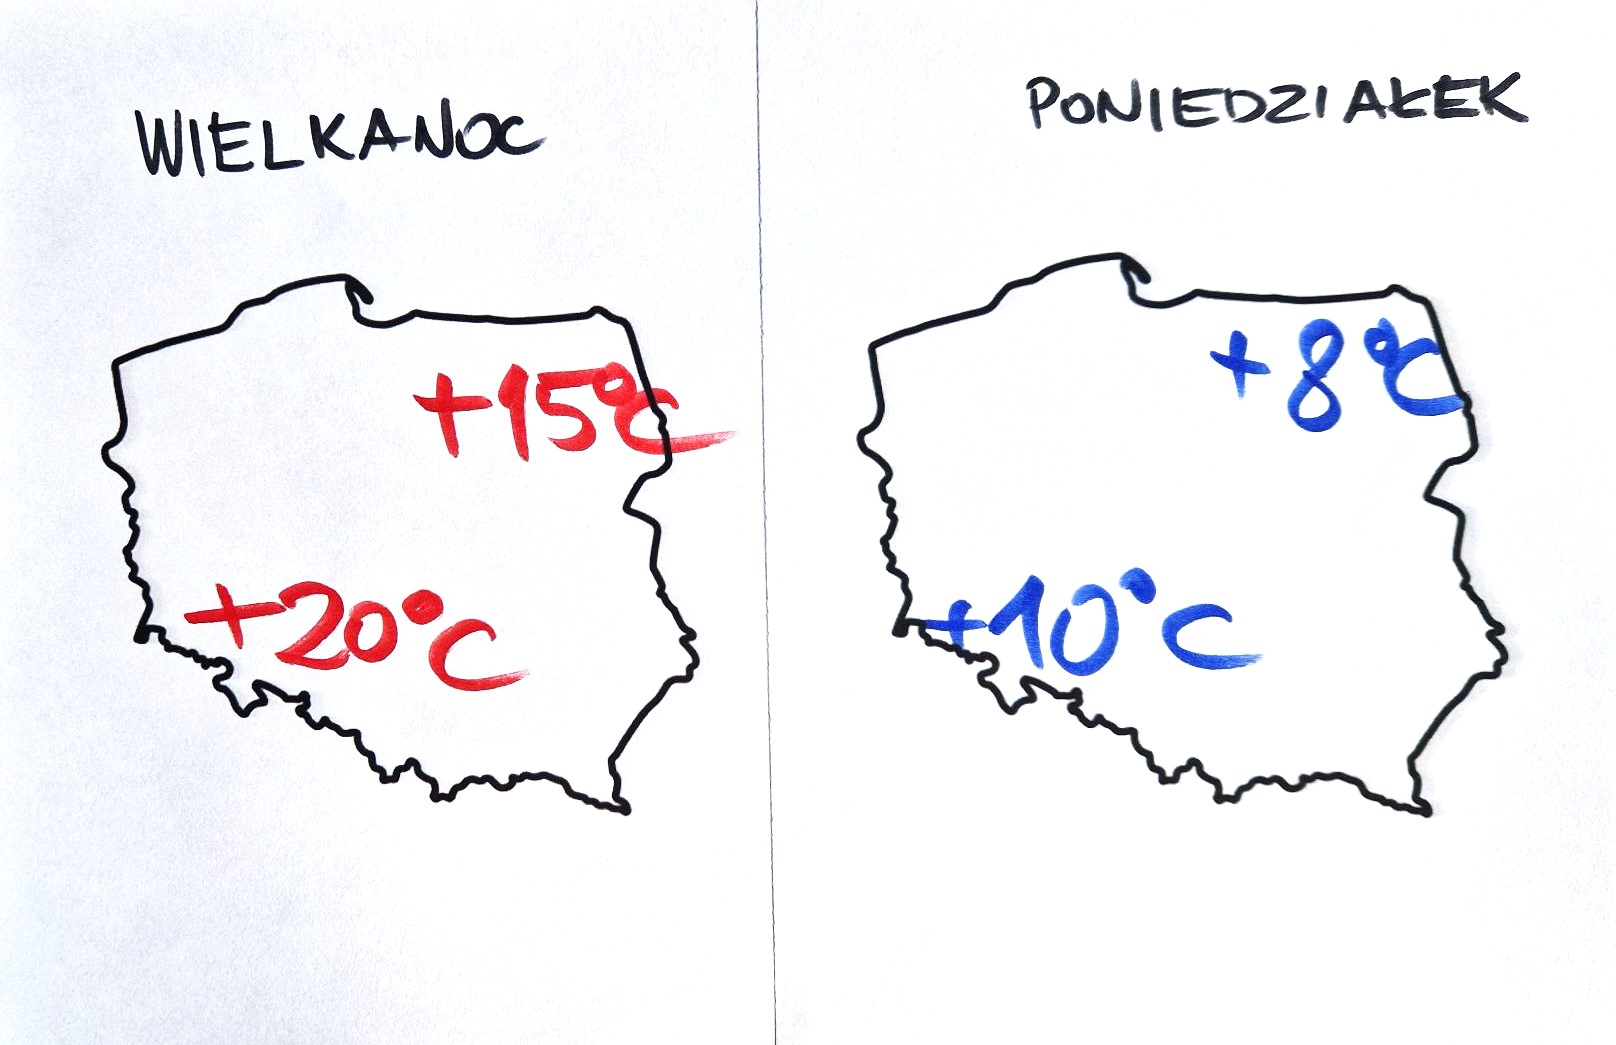 WIELKANOC
+15°C
+20°C
PONIEDZIAŁEK
+8°C
+10°C